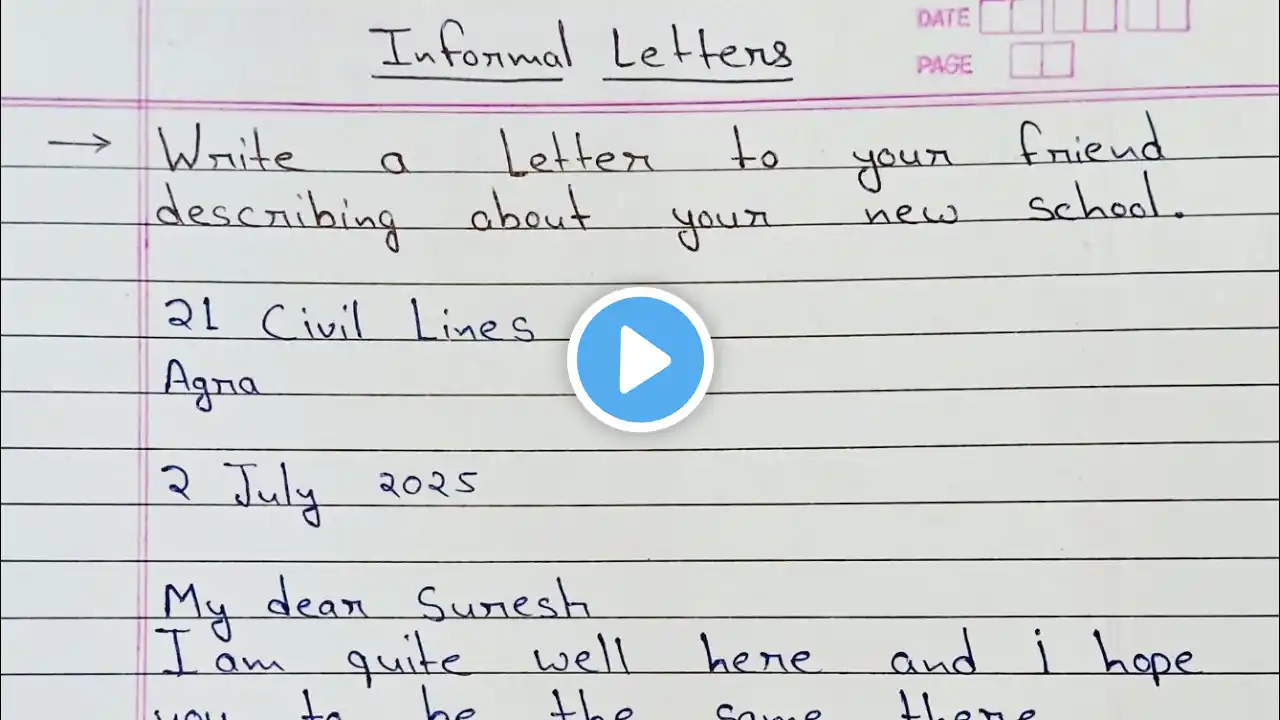 Informal Letters
DATE
PAGE
→ Write a Letter to your friend
describing about your new school.
21 Civil Lines
Agra
2 July 2025
My dear Suresh
I am quite well here and i hope
you to be the same there